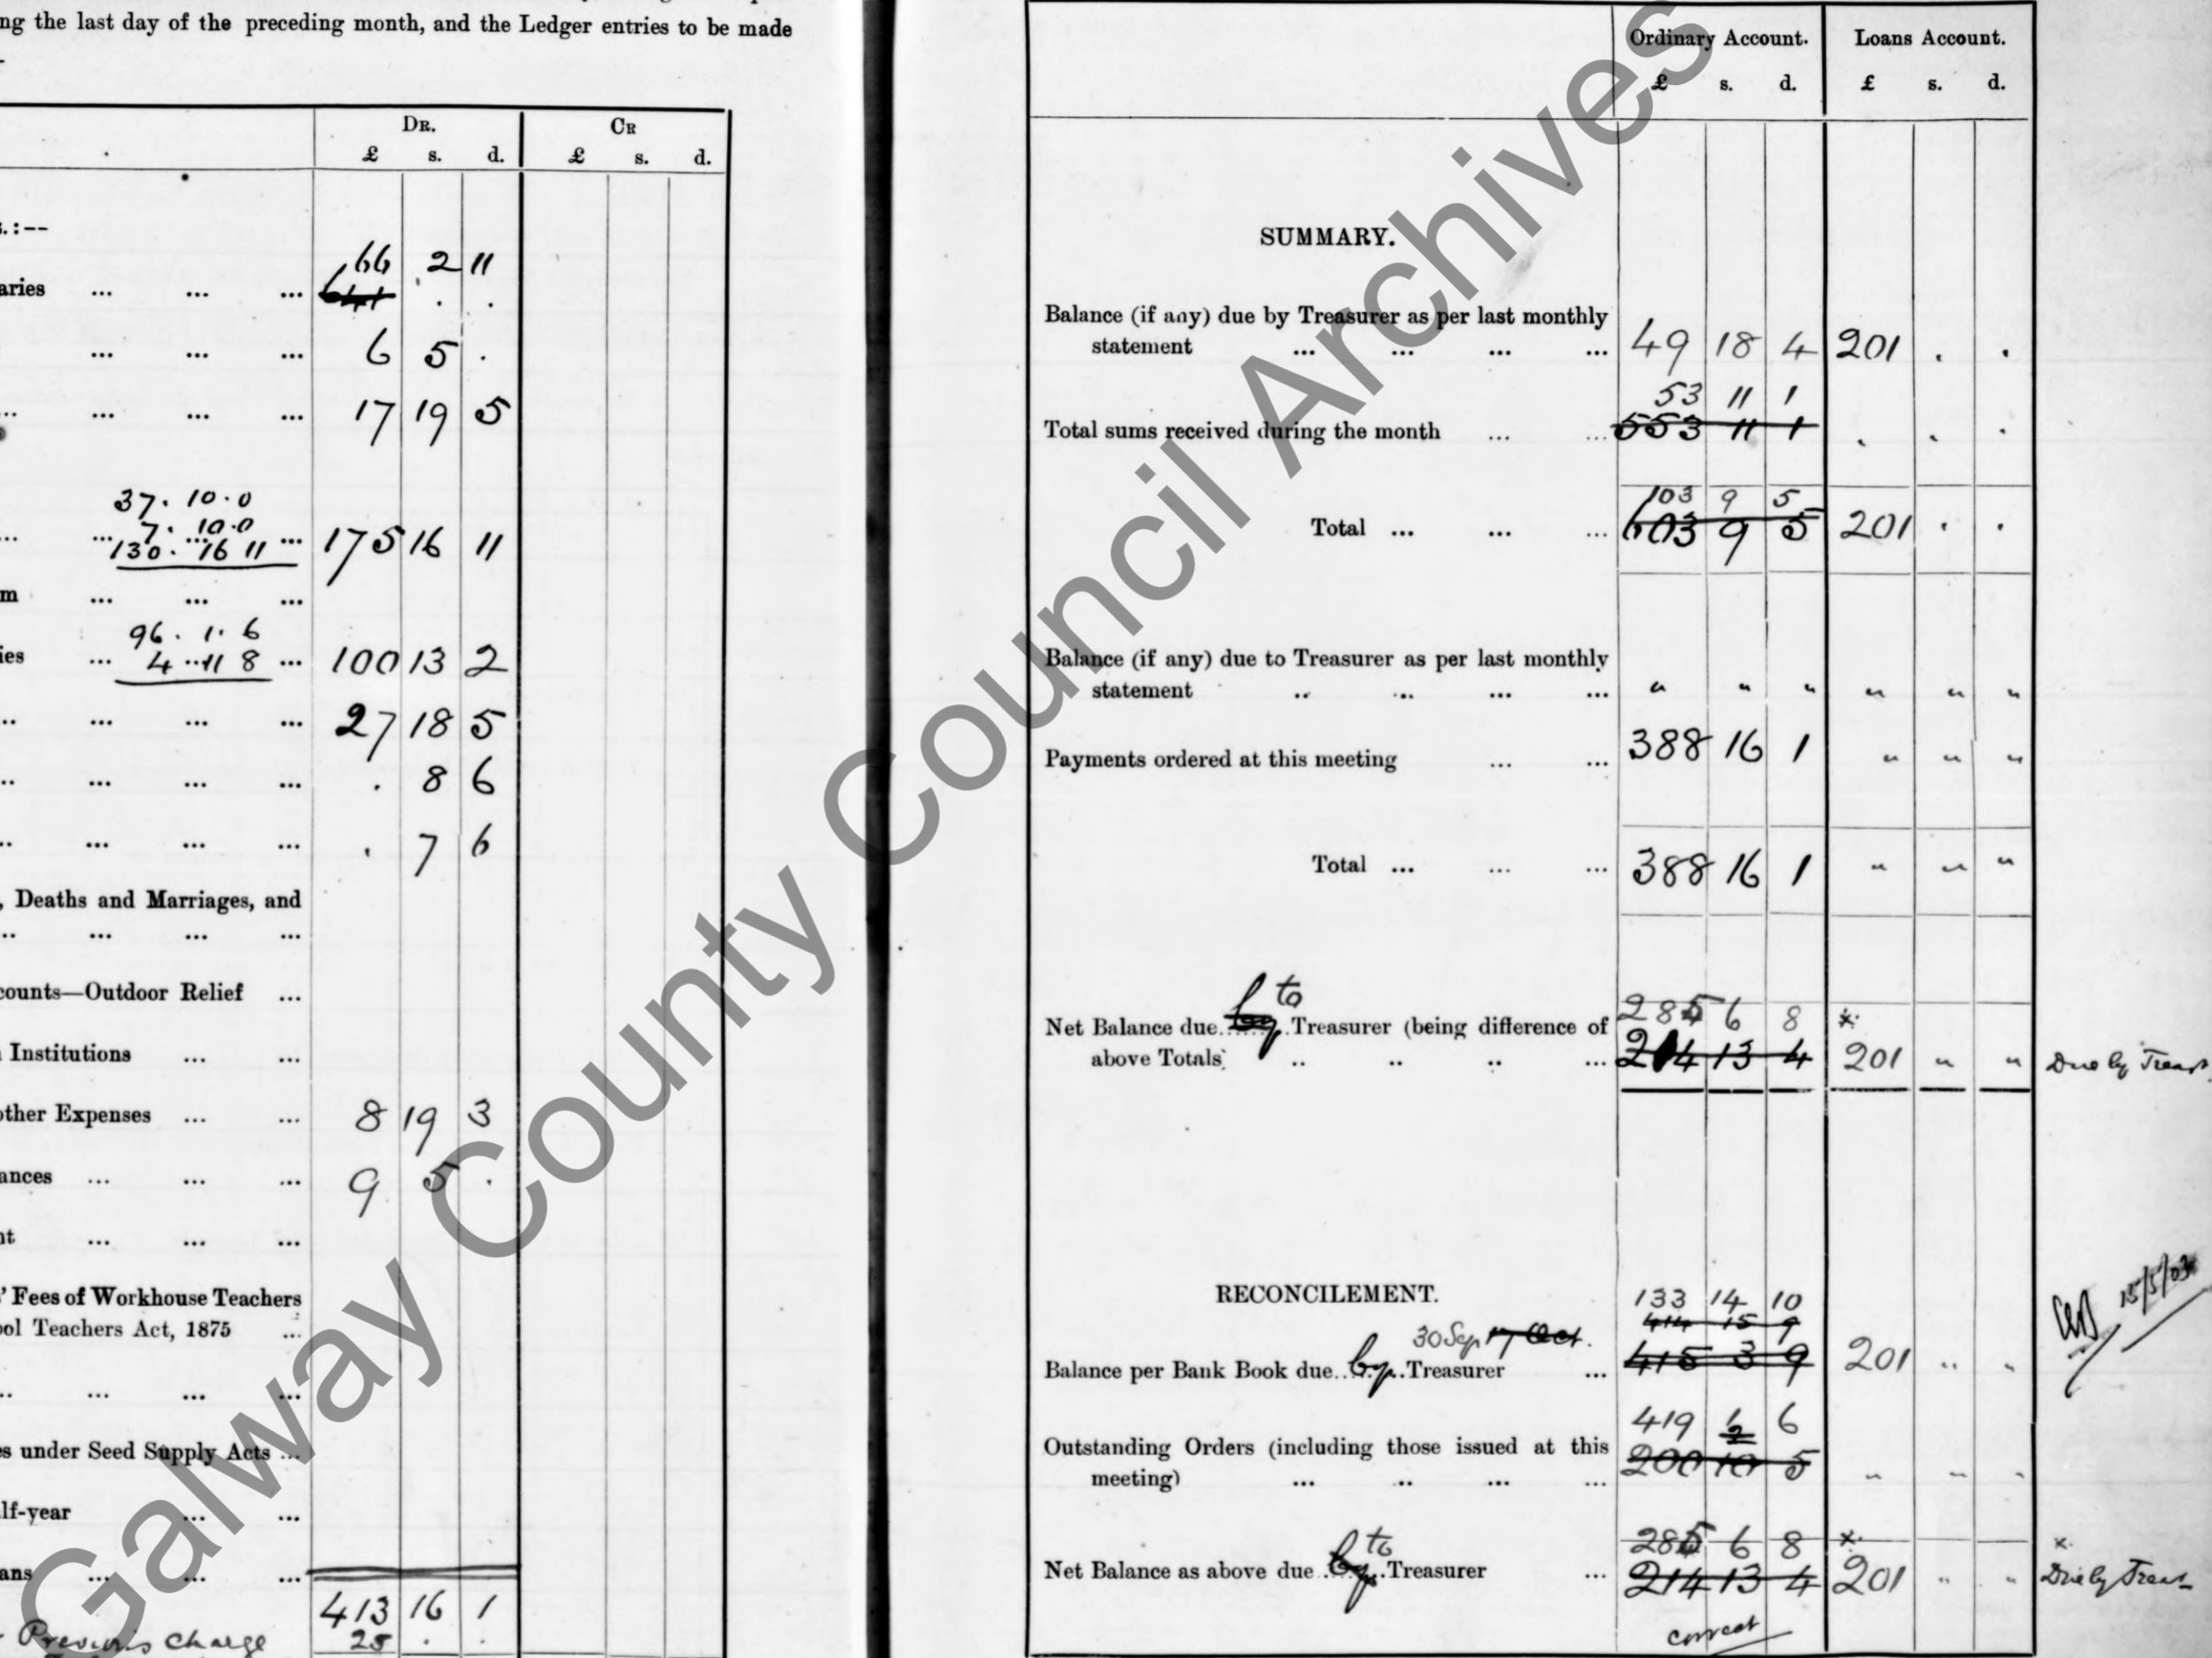 ng the last day of the preceding month, and the Ledger entries to be made
DR. CR
£ s. d. £ s. d.
s.:--
66 2 11
aries ... ... ... 641 . .
... ... ... 6 5 .
... ... ... 17 19 5
37. 10. 0
7. 10.0
130. 16 11
175 16 11
m ... ... ...
96. 1. 6
ies ... 4 11 8 ... 100 13 2
.. ... ... ... 27 18 5
.. ... ... ... . 8 6
.. ... ... ... . 7 6
, Deaths and Marriages, and
.. ... ... ...
counts—Outdoor Relief ...
Institutions ... ...
other Expenses ... ... 8 19 3
ances ... ... ... 9 5 .
nt ... ... ...
' Fees of Workhouse Teachers
ool Teachers Act, 1875 ...
.. ... ... ...
s under Seed Supply Acts ...
lf-year ... ...
ans ... ... ...
413 16 1
Previous Charge 25 . .
Ordinary Account. Loans Account.
£ s. d. £ s. d.
SUMMARY.
Balance (if any) due by Treasurer as per last monthly
statement ... ... ... ... 49 18 4 201 . .
53 11 1
Total sums received during the month ... ... 553 11 1 . . .
103 9 5
Total ... ... ... 603 9 5 201 . .
Balance (if any) due to Treasurer as per last monthly
statement .. ... ... ... " " " " " "
Payments ordered at this meeting ... ... 388 16 1 " " "
Total ... ... ... 388 16 1 " " "
to 285 6 8 x
Net Balance due by Treasurer (being difference of
above Totals .. .. .. ... 214 13 4 201 " " Due by Treas
RECONCILEMENT.
133 14 10
414 15 9
30 Sep 17 Oct.
Balance per Bank Book due by Treasurer ... 415 3 9 201 " "
15/5/03
419 6
Outstanding Orders (including those issued at this
200 10 5
meeting) ... .. ... ... " " "
to 285 6 8 x x
Net Balance as above due by Treasurer ... 214 13 4 201 " " Due by Treas
correct
Galway County Council Archives